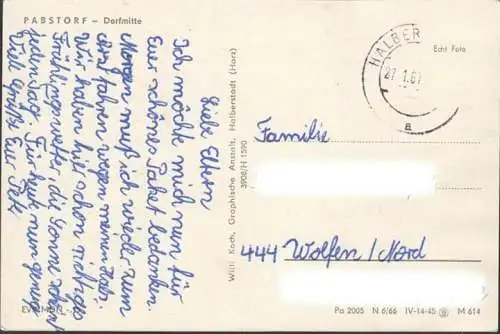 PABSTORF – Dorfmitte
Liebe Eltern
Ich möchte mich nun für
Euer schönes Paket bedanken.
Morgen muß ich wieder zum
Arzt fahren wegen meinen
Wir haben hier schon richtiges
Frühlingswetter, die Sonne scheint
jeden Tag. Für heute nun genug
Viele Grüße Euer
Willi Koch, Graphische Anstalt, Halberstadt (Harz)
3908/H 1590
HALBER
27.1.67
a
Echt Foto
Familie
444 Wolfen/Nord
Pa 2005 N 6/66 IV-14-45 M 614